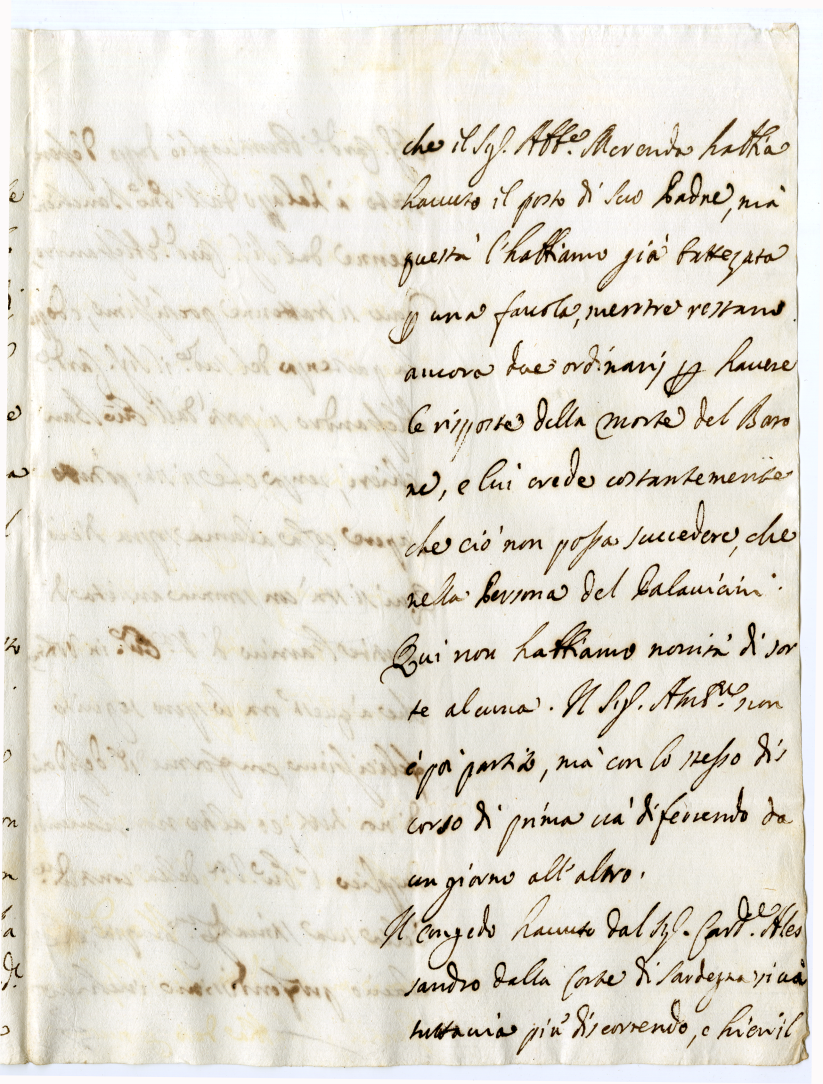 che il Sig.r Abb.e Merenda habbia
havuto il posto di suo Padre, mà
questa l'habbiamo già battezzata
ꝑ una favola, mentre restano
ancora due ordinarij ꝑ havere
le risposte della morte del Baro
ne, e lui crede costantemente
che ciò non possa succedere, che
nella Persona del Palavicini.
Qui non habbiamo novità di sor
te alcuna. Il Sig.r Amb.re non
è poi partito, mà con lo stesso dis
corso di prima và differendo da
un giorno all'altro.
Il congedo havuto dal Sig.r Card.le Ales
sandro dalla Corte di Sardegna si và
tuttavia più discorrendo, e hieri il